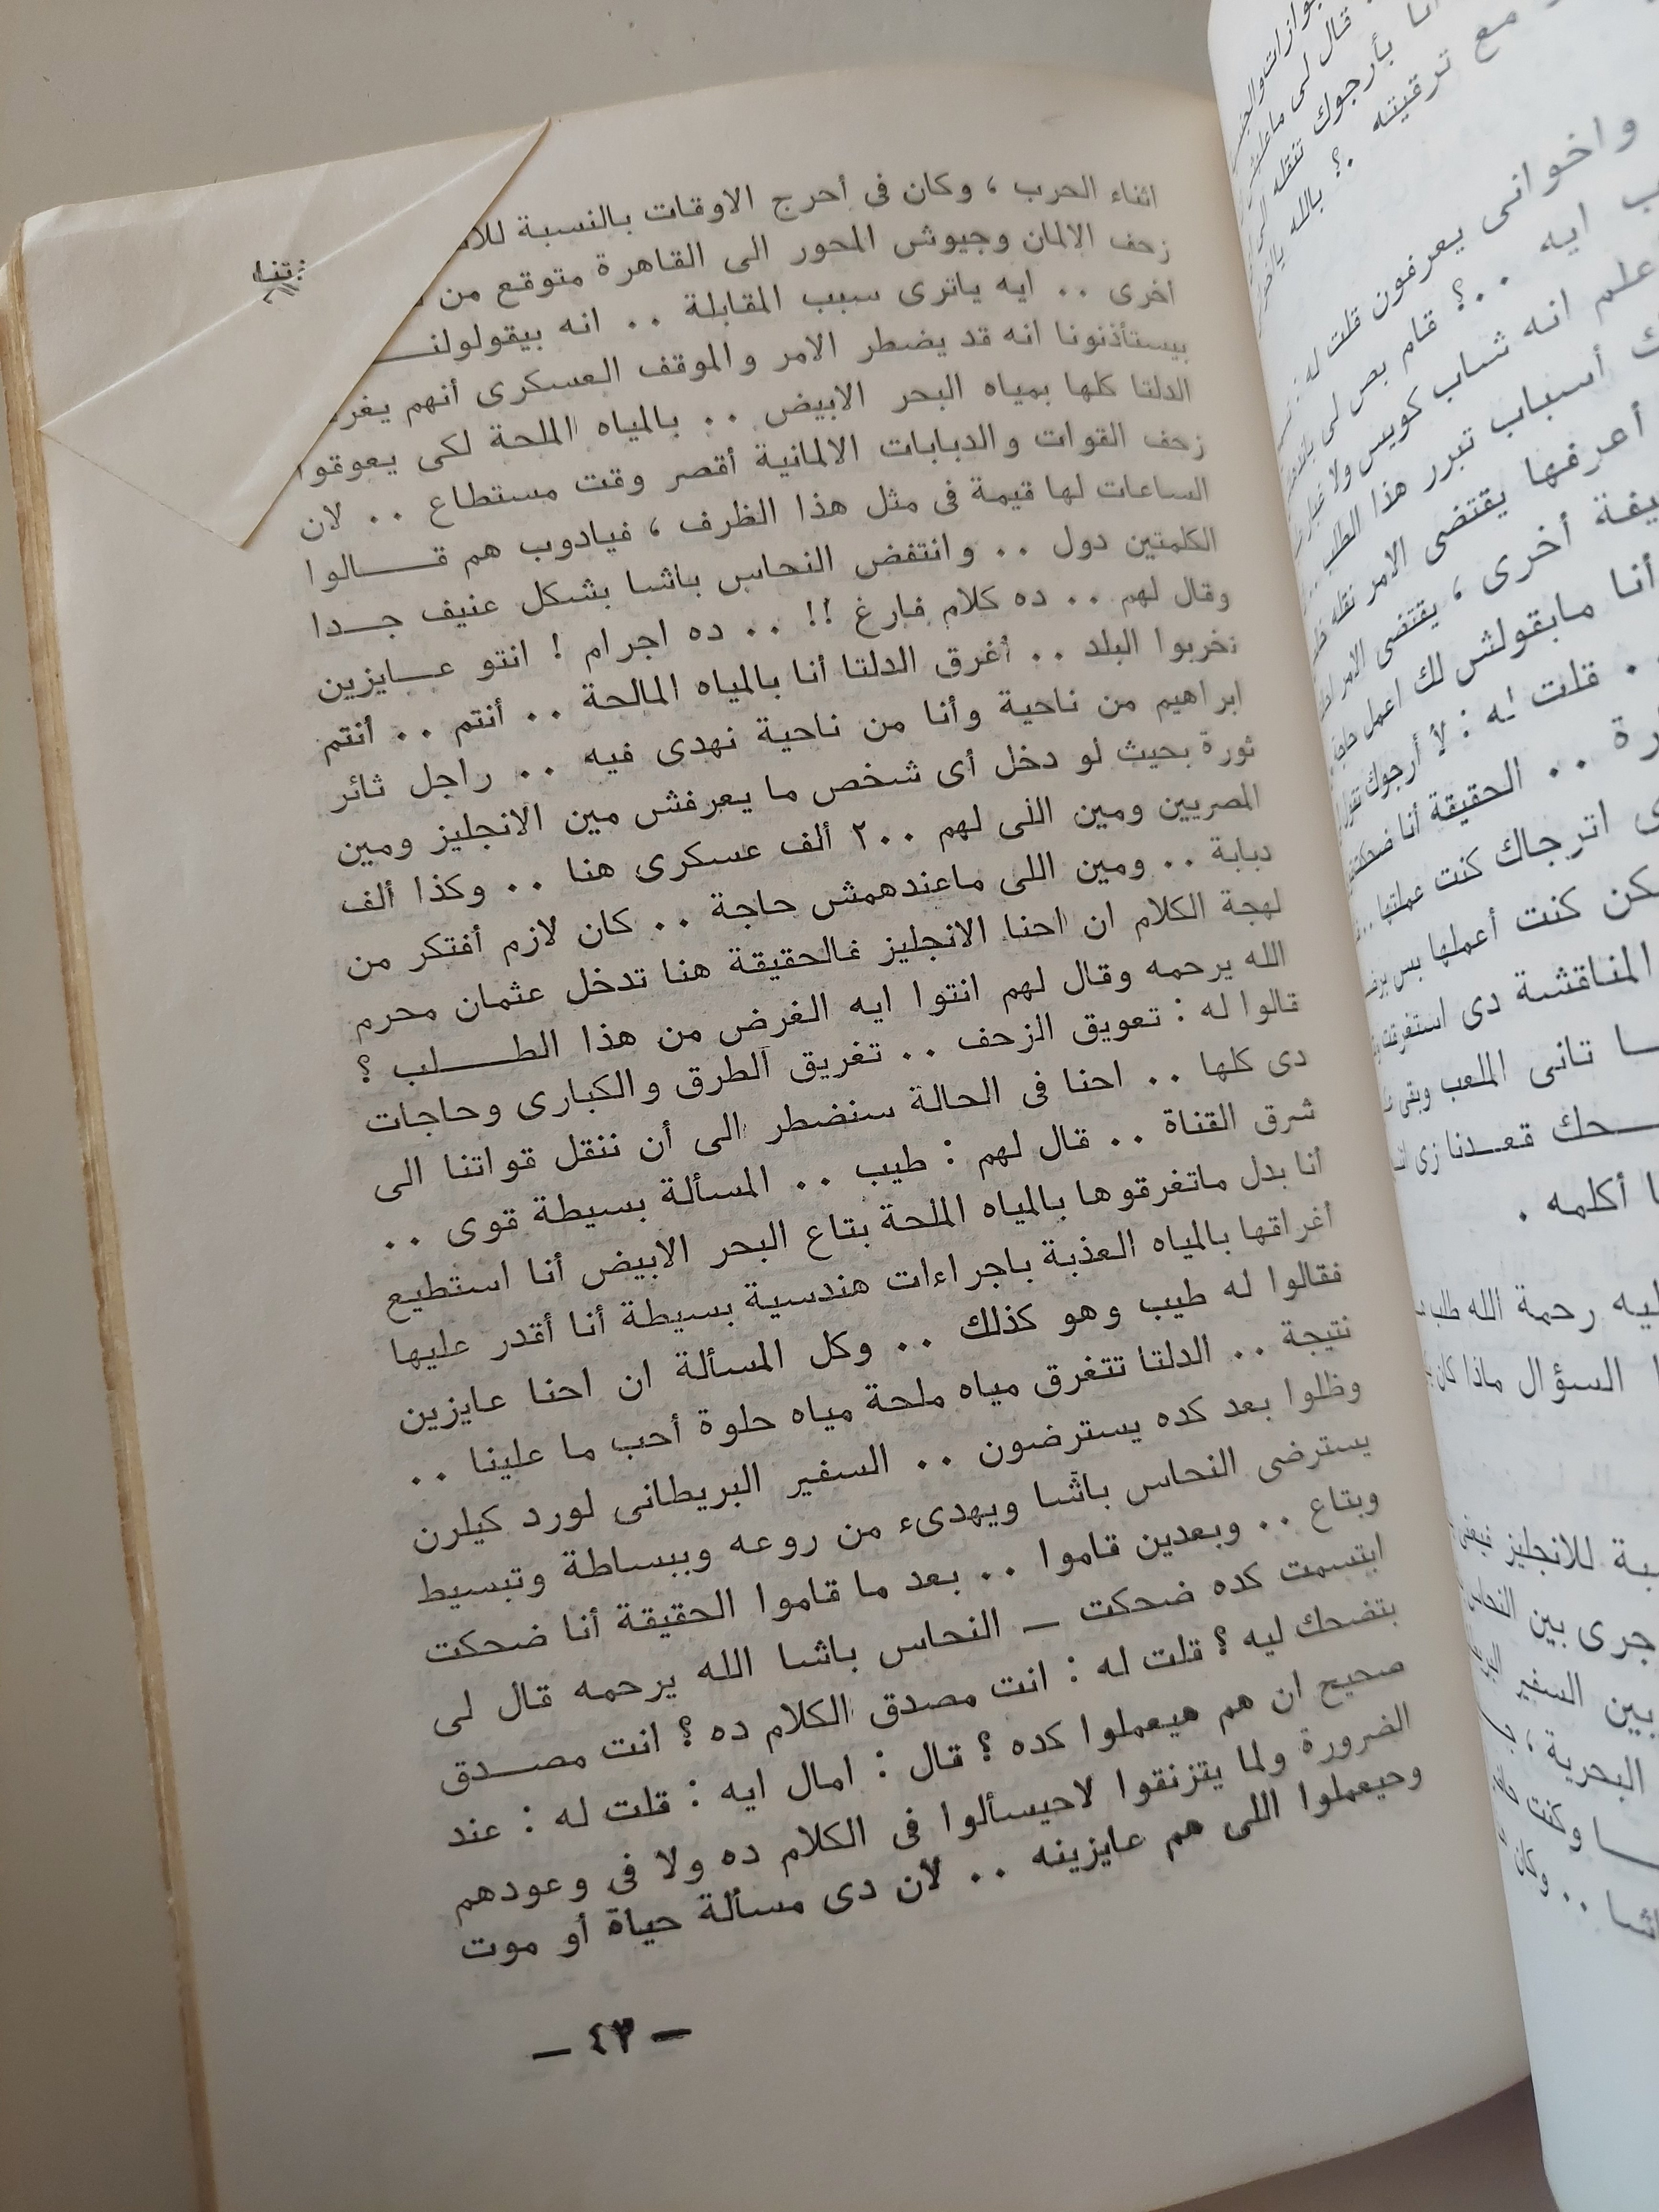 اثناء الحرب ، وكان فى أحرج الاوقات بالنسبة
زحف الالمان وجيوش المحور الى القاهرة متوقع من
أخرى .. ايه ياترى سبب المقابلة .. انه
بيستأذنونا انه قد يضطر الامر والموقف العسكرى أنهم
الدلتا كلها بمياه البحر الابيض .. بالمياه الملحة لكى يعوقوا
زحف القوات والدبابات الالمانية أقصر وقت مستطاع .. لان
الساعات لها قيمة فى مثل هذا الظرف ، فيادوب هم قالوا
الكلمتين دول .. وانتفض النحاس باشا بشكل عنيف جدا
وقال لهم .. ده كلام فارغ !! .. ده اجرام ! انتو عايزين
تخربوا البلد .. أغرق الدلتا أنا بالمياه المالحة .. أنتم .. أنتم
ابراهيم من ناحية وأنا من ناحية نهدى فيه .. راجل ثائر
ثورة بحيث لو دخل أى شخص ما يعرفش مين الانجليز ومين
المصريين ومين اللى لهم ٢٠٠ ألف عسكرى هنا .. وكذا ألف
دبابة .. ومين اللى ماعندهمش حاجة .. كان لازم أفتكر من
لهجة الكلام ان احنا الانجليز فالحقيقة هنا تدخل عثمان محرم
الله يرحمه وقال لهم انتوا ايه الغرض من هذا الطلب ؟
قالوا له : تعويق الزحف .. تغريق الطرق والكبارى وحاجات
دى كلها .. احنا فى الحالة سنضطر الى أن ننقل قواتنا الى
شرق القناة .. قال لهم : طيب .. المسألة بسيطة قوى ..
أنا بدل ماتغرقوها بالمياه الملحة بتاع البحر الابيض أنا استطيع
أغراقها بالمياه العذبة باجراءات هندسية بسيطة أنا أقدر عليها
فقالوا له طيب وهو كذلك .. وكل المسألة ان احنا عايزين
نتيجة .. الدلتا تتغرق مياه ملحة مياه حلوة أحب ما علينا ..
وظلوا بعد كده يسترضون .. السفير البريطانى لورد كيلرن
يسترضى النحاس باشا ويهدىء من روعه وببساطة وتبسيط
وبتاع .. وبعدين قاموا .. بعد ما قاموا الحقيقة أنا ضحكت
ابتسمت كده ضحكت — النحاس باشا الله يرحمه قال لى
بتضحك ليه ؟ قلت له : انت مصدق الكلام ده ؟ انت مصدق
صحيح ان هم هيعملوا كده ؟ قال : امال ايه : قلت له : عند
الضرورة ولما يتزنقوا لاحيسألوا فى الكلام ده ولا فى وعودهم
وحيعملوا اللى هم عايزينه .. لأن دى مسألة حياة أو موت
— ٤٣ —
مع ترقيته .؟ بالله
واخوانى يعرفون قلت له :
ايه ..؟ قام بص لى
علم انه شاب كويس ولا
أسباب تبرر هذا الطلب
أعرفها يقتضى الامر نقله
أخرى ، يقتضى الامر
أنا مابقولش لك اعمل
.. قلت له : لأ أرجوك
.. الحقيقة أنا ضحكت
اترجاك كنت عملتها
كنت أعملها بس
المناقشة دى استغرقت
تانى الملعب وبقى
قعدنا زى
أكلمه .
رحمة الله طلب
السؤال ماذا كان
للانجليز
جرى بين
بين السفير
البحرية ،
وكنت